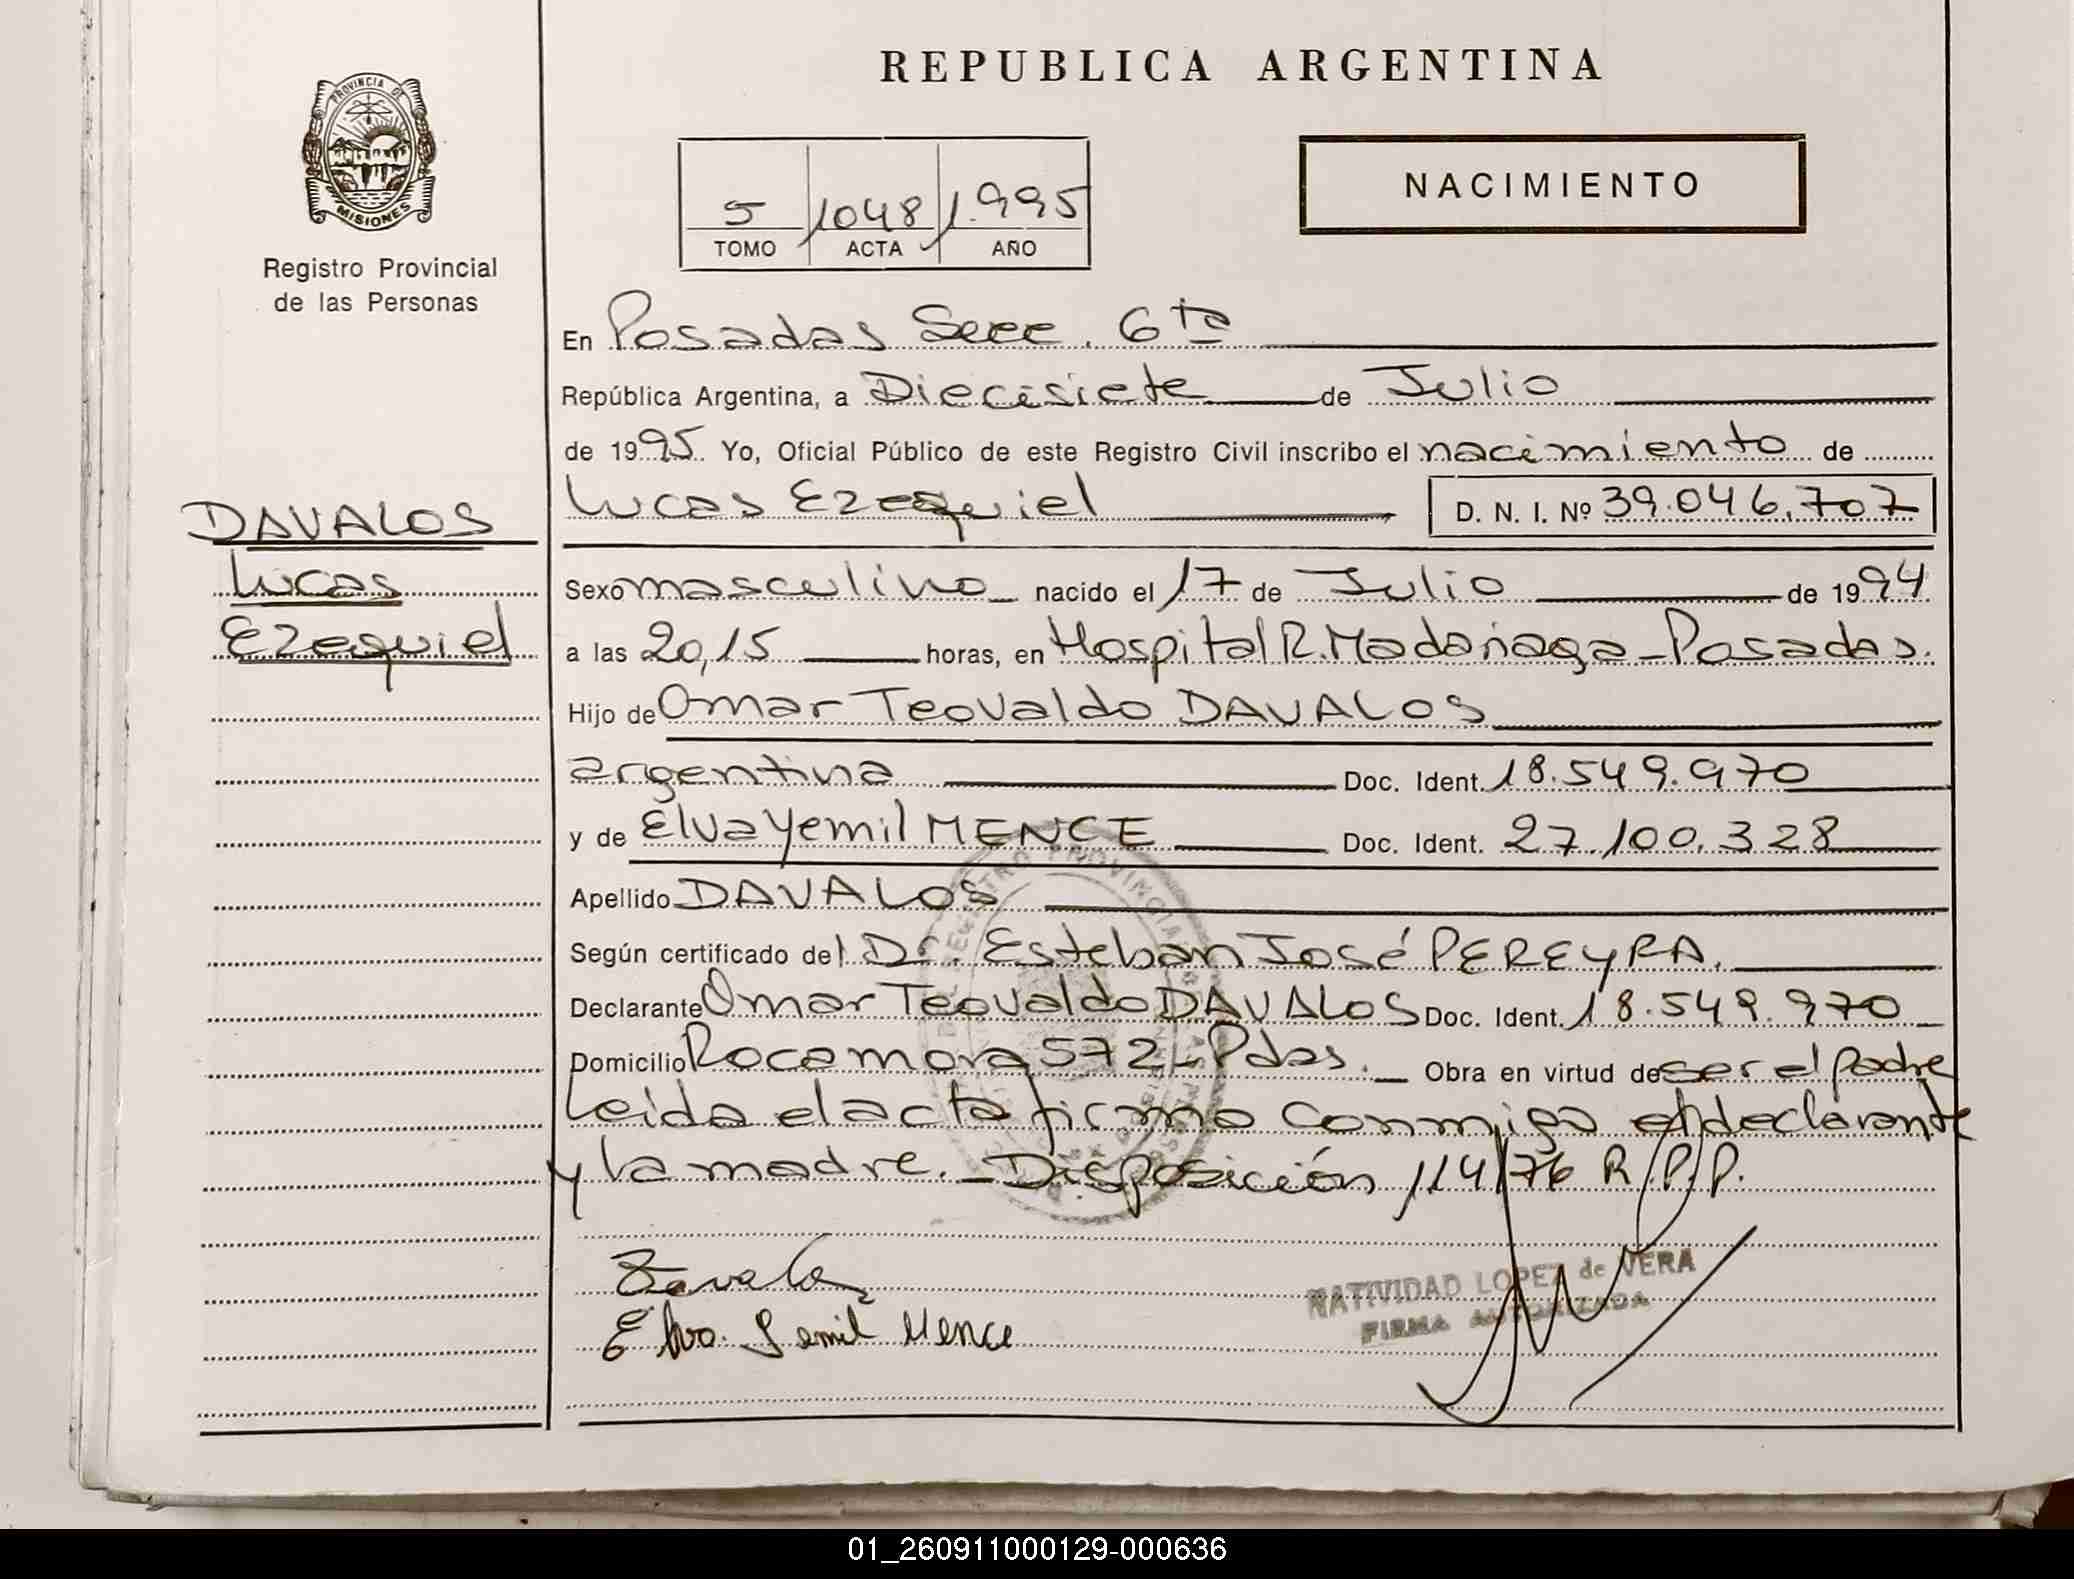 REPUBLICA ARGENTINA
PROVINCIA DE
MISIONES
Registro Provincial
de las Personas
NACIMIENTO
5 1048 1.995
TOMO ACTA AÑO
En Posadas Secc. 6ta
República Argentina, a Diecisiete de Julio
de 1995 Yo, Oficial Público de este Registro Civil inscribo el nacimiento de
Lucas Ezequiel D. N. I. Nº 39.046.707
DAVALOS
Lucas
Ezequiel
Sexo masculino nacido el 17 de Julio de 1994
a las 20,15 horas, en Hospital R. Madariaga - Posadas.
Hijo de Omar Teovaldo DAVALOS
argentina Doc. Ident. 18.549.970
y de Elva Yemil MENCE Doc. Ident. 27.100.328
Apellido DAVALOS
Según certificado del Dr. Esteban José PEREYRA.
Declarante Omar Teovaldo DAVALOS Doc. Ident. 18.549.970
Domicilio Rocamora 572 - Pdas. Obra en virtud de ser el padre
Leida el acta firma conmigo el declarante
y la madre. - Disposición 114/76 R.P.P.
NATIVIDAD LOPEZ de VERA
FIRMA AUTORIZADA
Elva Yemil Mence
01_260911000129-000636